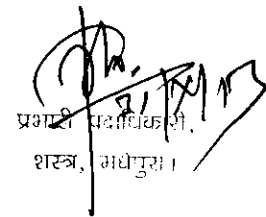 प्रभारी पदाधिकारी,
शस्त्र, मधेपुरा।